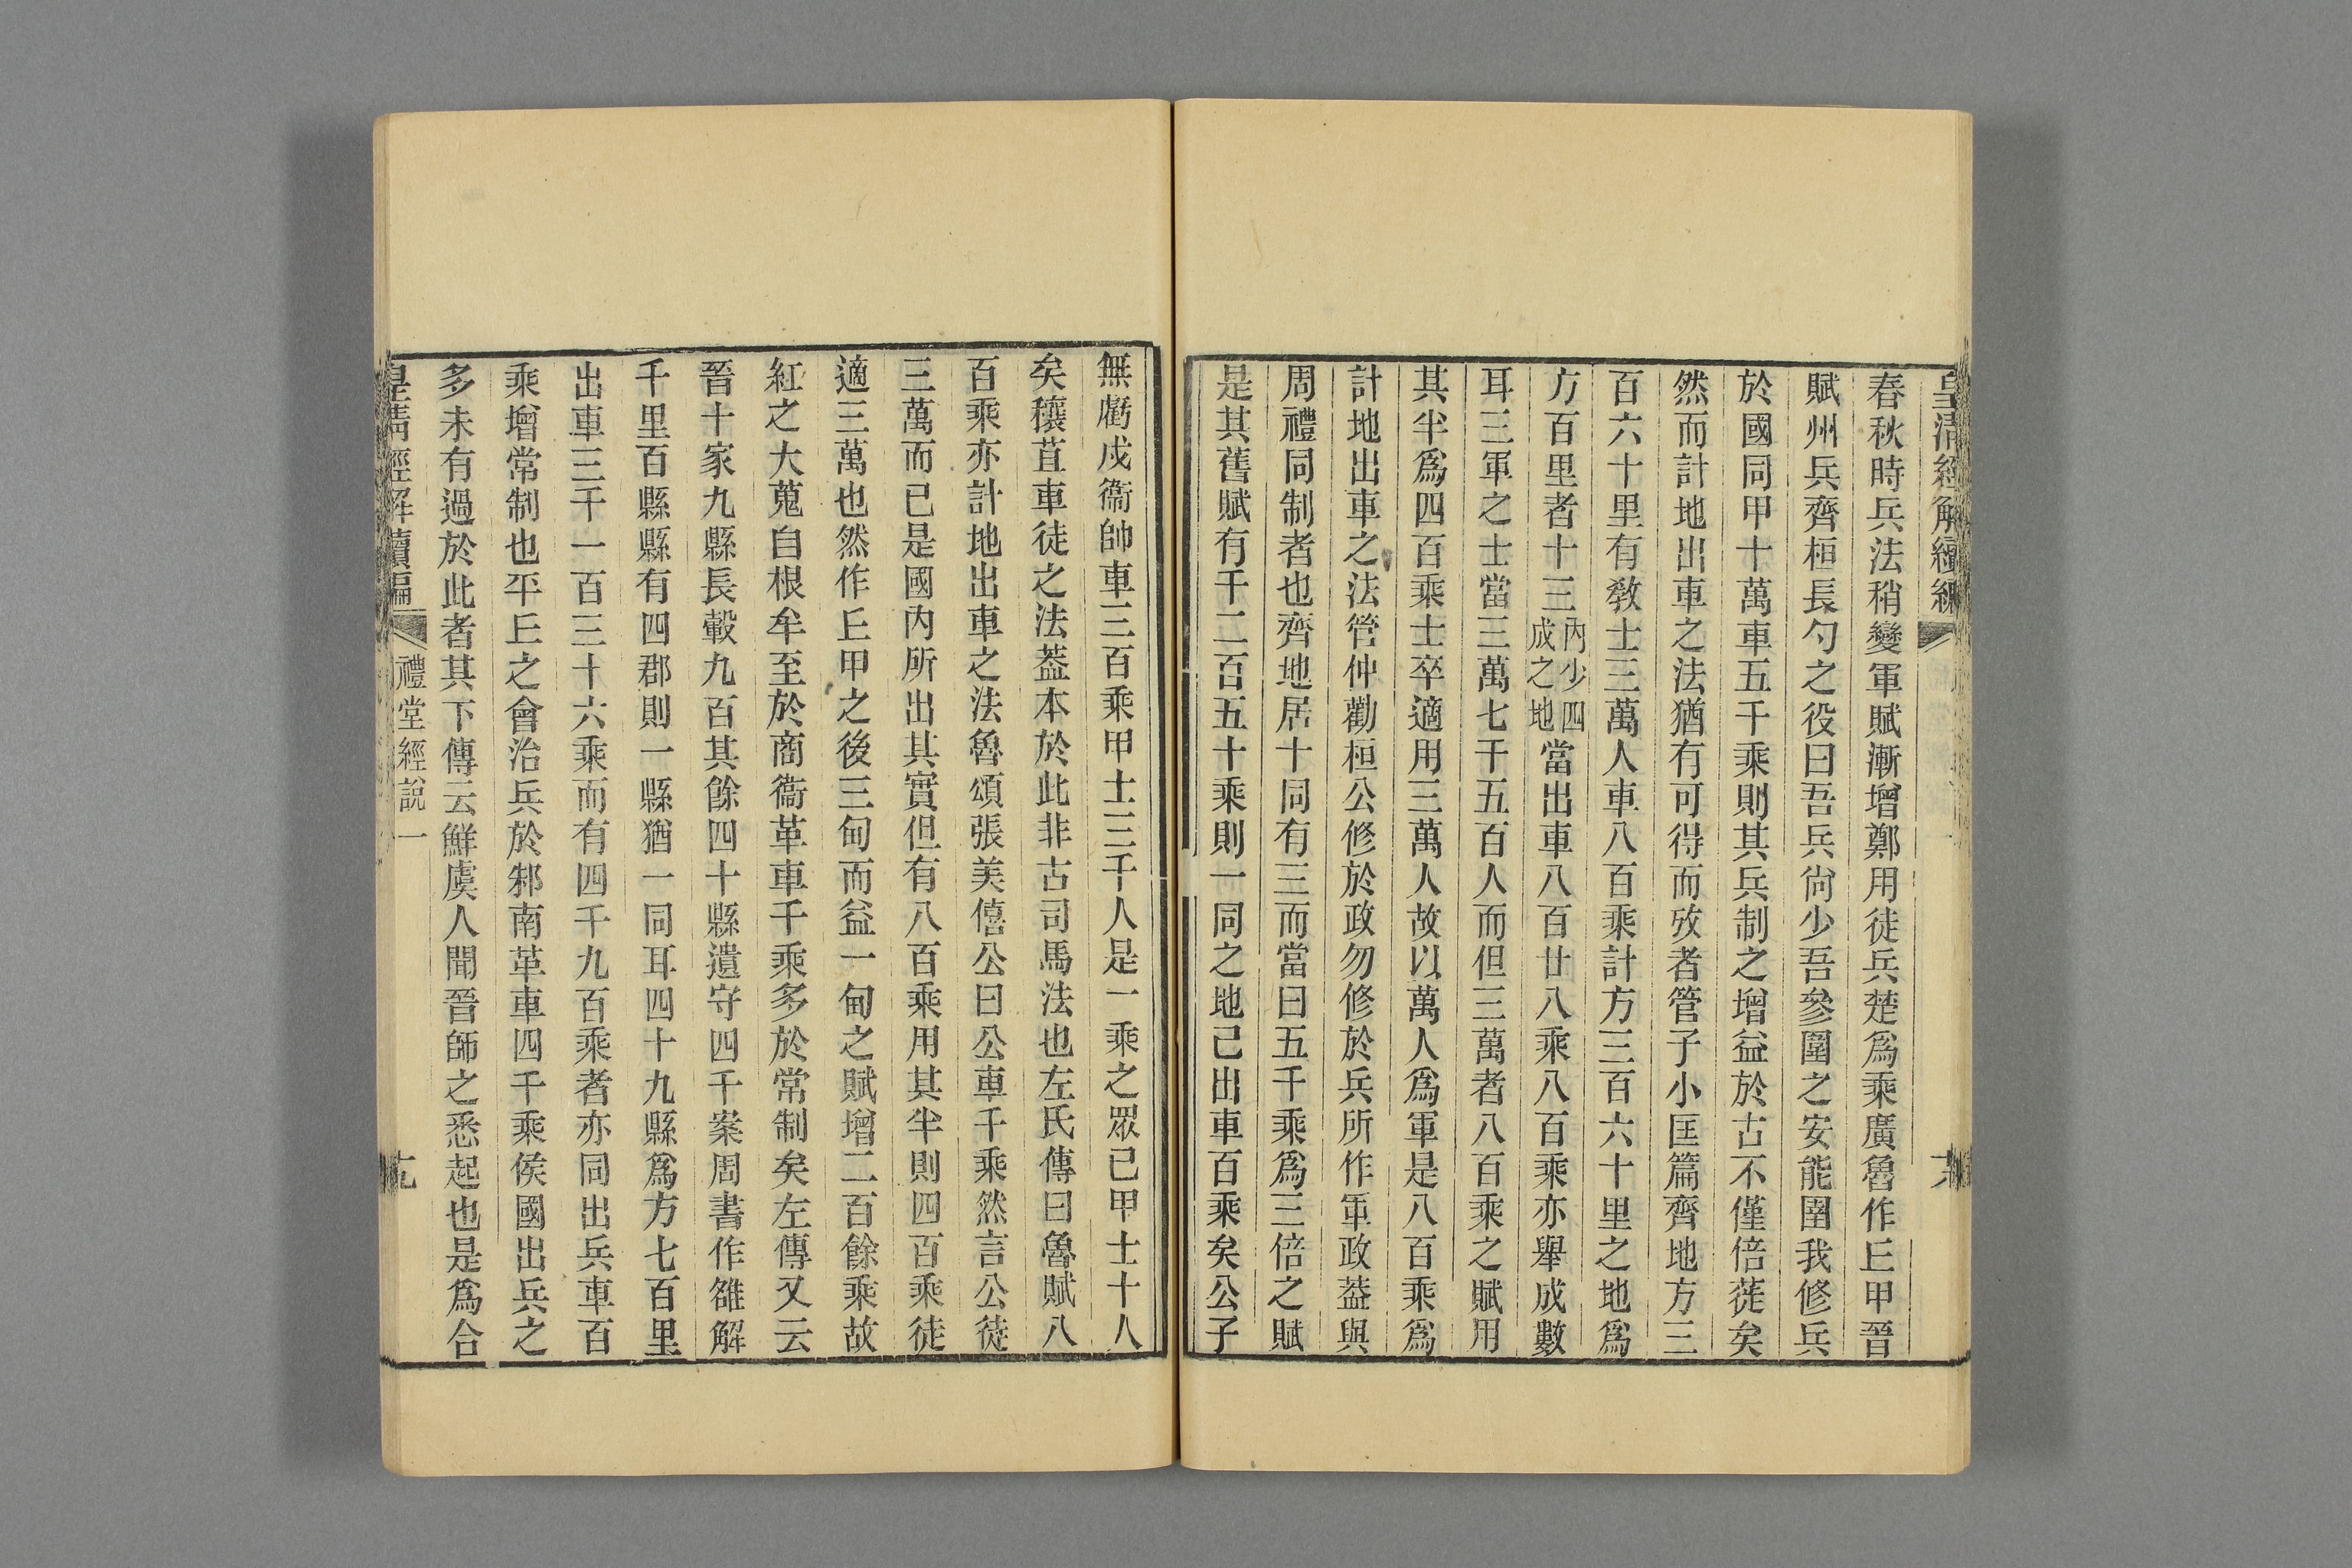 皇清經解續編
春秋時兵法稍變軍賦漸增鄭用徒兵楚爲乘廣魯作𠀉甲晉
賦州兵齊桓長勺之役曰吾兵尙少吾參圍之安能圉我修兵
於國同甲十萬車五千乘則其兵制之增益於古不僅倍蓰矣
然而計地出車之法猶有可得而攷者管子小匡篇齊地方三
百六十里有敎士三萬人車八百乘計方三百六十里之地爲
方百里者十三內少四成之地當出車八百廿八乘八百乘亦舉成數
耳三軍之士當三萬七千五百人而但三萬者八百乘之賦用
其半爲四百乘士卒適用三萬人故以萬人爲軍是八百乘爲
計地出車之法管仲勸桓公修於政勿修於兵所作軍政葢與
周禮同制者也齊地居十同有三而當曰五千乘爲三倍之賦
是其舊賦有千二百五十乘則一同之地已出車百乘矣公子
無虧戍衞帥車三百乘甲士三千人是一乘之眾已甲士十人
矣穰苴車徒之法葢本於此非古司馬法也左氏傳曰魯賦八
百乘亦計地出車之法魯頌張美僖公曰公車千乘然言公徒
三萬而已是國內所出其實但有八百乘用其半則四百乘徒
適三萬也然作𠀉甲之後三甸而益一甸之賦增二百餘乘故
紅之大蒐自根牟至於商衞革車千乘多於常制矣左傳又云
晉十家九縣長轂九百其餘四十縣遺守四千案周書作雒解
千里百縣縣有四郡則一縣猶一同耳四十九縣爲方七百里
出車三千一百三十六乘而有四千九百乘者亦同出兵車百
乘增常制也平𠀉之會治兵於邾南革車四千乘侯國出兵之
多未有過於此者其下傳云鮮虞人聞晉師之悉起也是爲合
皇清經解續編
禮堂經說一